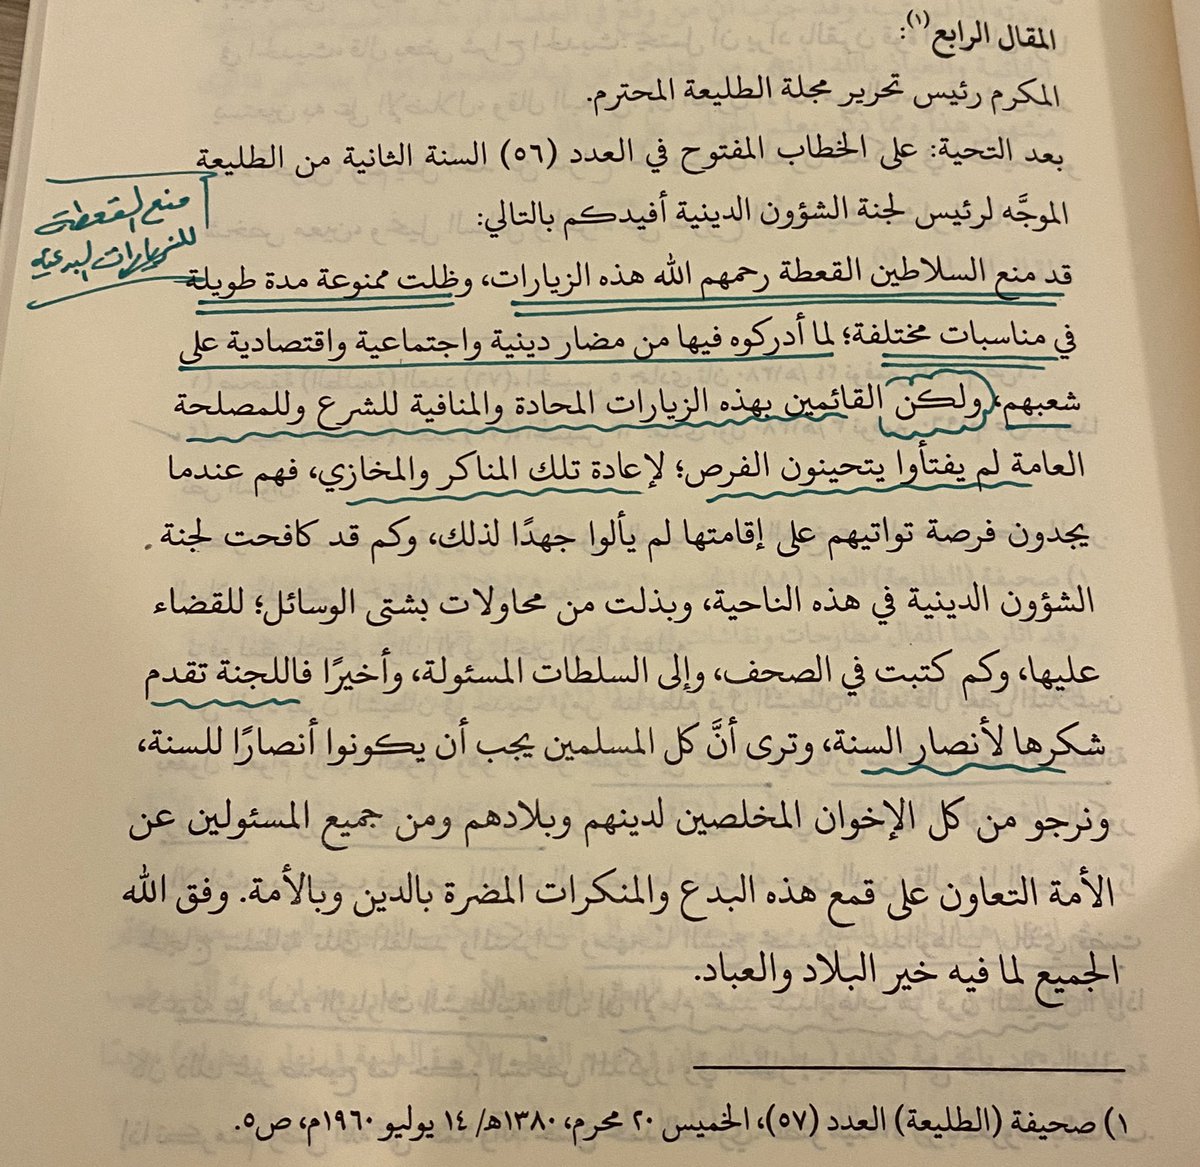 المقال الرابع(١):
المكرم رئيس تحرير مجلة الطليعة المحترم.
بعد التحية: على الخطاب المفتوح في العدد (٥٦) السنة الثانية من الطليعة
الموجَّه لرئيس لجنة الشؤون الدينية أفيدكم بالتالي:
منع القعطة
للزيارات البدعية
قد منع السلاطين القعطة رحمهم الله هذه الزيارات، وظلت ممنوعة مدة طويلة
في مناسبات مختلفة؛ لما أدركوه فيها من مضار دينية واجتماعية واقتصادية على
شعبهم، ولكن القائمين بهذه الزيارات المحادة والمنافية للشرع وللمصلحة
العامة لم يفتأوا يتحينون الفرص؛ لإعادة تلك المناكر والمخازي، فهم عندما
يجدون فرصة تواتيهم على إقامتها لم يألوا جهدًا لذلك، وكم قد كافحت لجنة
الشؤون الدينية في هذه الناحية، وبذلت من محاولات بشتى الوسائل؛ للقضاء
عليها، وكم كتبت في الصحف، وإلى السلطات المسئولة، وأخيرًا فاللجنة تقدم
شكرها لأنصار السنة، وترى أنَّ كل المسلمين يجب أن يكونوا أنصارًا للسنة،
ونرجو من كل الإخوان المخلصين لدينهم وبلادهم ومن جميع المسئولين عن
الأمة التعاون على قمع هذه البدع والمنكرات المضرة بالدين وبالأمة. وفق الله
الجميع لما فيه خير البلاد والعباد.
١) صحيفة (الطليعة) العدد (٥٧)، الخميس ٢٠ محرم، ١٣٨٠هـ/ ١٤ يوليو ١٩٦٠م، ص٥.